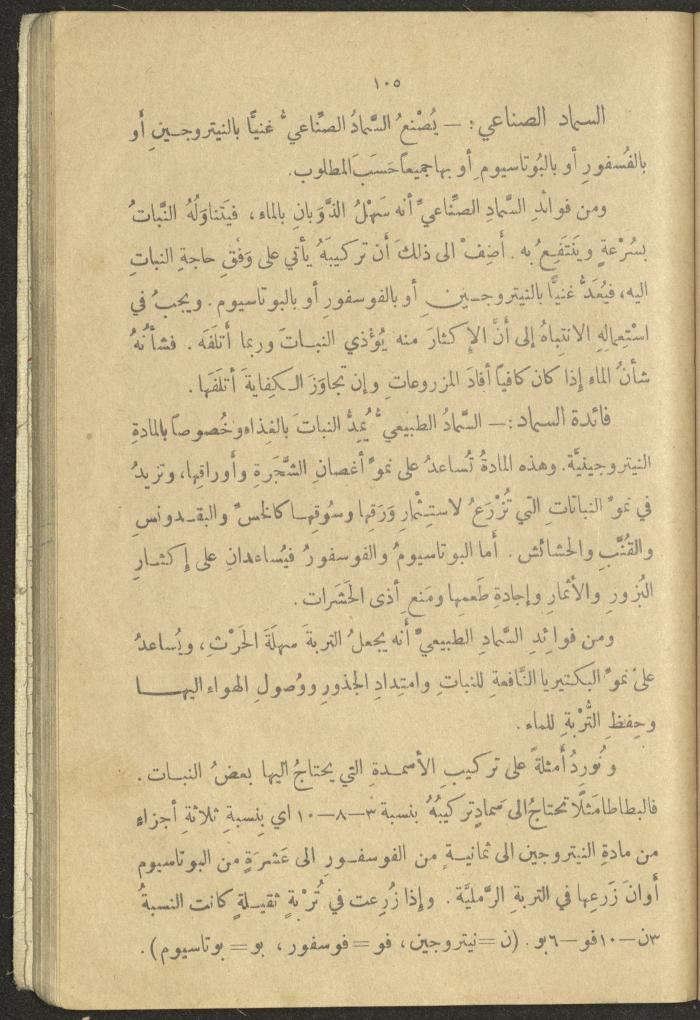 ١٠٥
السماد الصناعي : — يُصْنعُ السَّمادُ الصِّناعي ُّ غنيًّا بالنيتروجـينِ أَو
بالفُسفورِ أو بالبُوتاسيومِ أو بها جميعاً حَسَبَ المطلوب.
ومن فوائدِ السَّمادِ الصِّناعيِّ أنه سَهْلُ الذَّوَبانِ بالماء، فيَتناوَلُهُ النَّباتُ
بسُرْعةٍ ويَنتَفِعُ به . أَضِفْ الى ذلكَ أَن تركيبَهُ يأتي على وَفْقِ حاجةِ النباتِ
اليه، فيُعَدُّ غنيًّا بالنيتروجـينِ أو بالفوسفورِ أو بالبوتاسيوم . ويجبُ في
اسْتِعمالِهِ الانتِباهُ إلى أَنَّ الإِكثارَ منه يُؤْذي النبـاتَ وربما أَتلَفَه . فشأنُهُ
شأنُ الماءِ إذا كان كافياً أفادَ المزروعاتِ وإن تجاوَزَ الـكِفايةَ أتلَفَها .
فائدة السماد : — السَّمادُ الطبيعيُّ يُمِدُّ النباتَ بالغِذاء وخُصوصاً بالمادةِ
النيتروجينيَّة . وهذه المادةُ تُساعدُ على نموِّ أغصانِ الشَّجَرةِ وأَوراقِها، وتزيدُ
في نموِّ النباتاتِ التي تُزْرَعُ لاستِثْمارِ وَرَقِها وسُوقِهـا كالخسِّ والبقـدونسِ
والقُنَّبِ والحشائش . أَما البوتاسيومُ والفوسفورُ فيُساعدانِ على إِكـثـارِ
البُزورِ والأثمارِ وإجادةِ طَعمِها ومَنعِ أذى الحَشَرات .
ومن فوائِدِ السَّمادِ الطبيعيِّ أنه يجعلُ التربةَ سهلَةَ الحَرْثِ، ويُساعدُ
على نموِّ البكتيريا النَّافعةِ للنباتِ وامتِدادِ الجذورِ ووُصولِ الهواء اليهـا
وحِفظِ التُّرْبةِ للماء .
ونُورِدُ أمثلةً على تركيبِ الأسمـدةِ التي يحتاجُ اليها بعضُ النبـات .
فالبطاطا مَثلًا تحتاجُ الى سمادٍ تركيبُهُ بنسبة ٣—٨—١٠ اي بِنِسبةِ ثلاثةِ أجزاءٍ
من مادةِ النيتروجين الى ثمانيـةٍ من الفوسفـورِ الى عَشَرَةٍ من البوتاسيوم
أَوانَ زَرعِها في التربةِ الرَّمليَّة . وإذا زُرِعت في تُرْبةٍ ثقيـلةٍ كانت النسبةُ
٣ن—١٠فو—٦بو . (ن = نيتروجين، فو = فوسفور، بو = بوتاسيوم) .